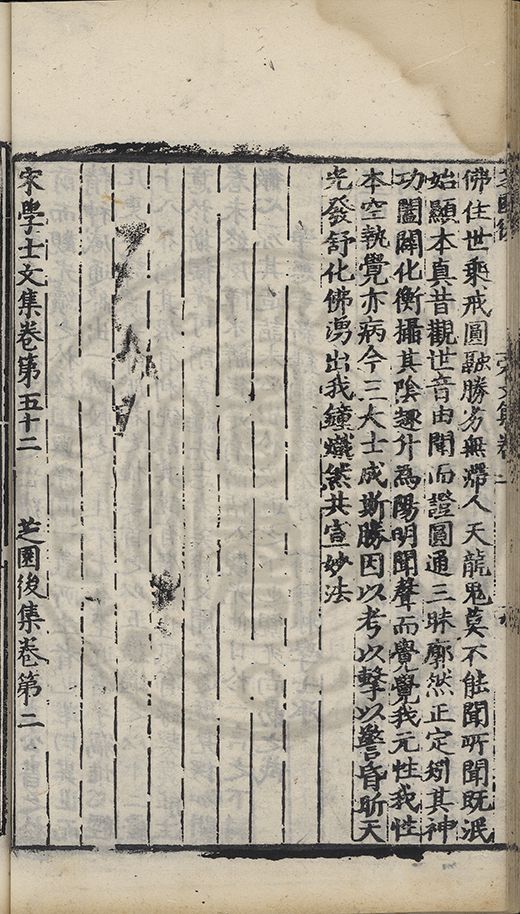 佛住世乘戒圓融勝劣無滯人天龍鬼莫不能聞所聞既泯
始顯本真昔觀世音由聞而證圓通三昧廓然正定矧其神
功闔闢化衡攝其陰趣升為陽明聞聲而覺覺我元性我性
本空執覺亦病今三大士成斯勝因以考以擊以警昏昕天
光發舒化佛湧出我鐘熾然共宣妙法
宋學士文集卷第五十二 芝園後集卷第二